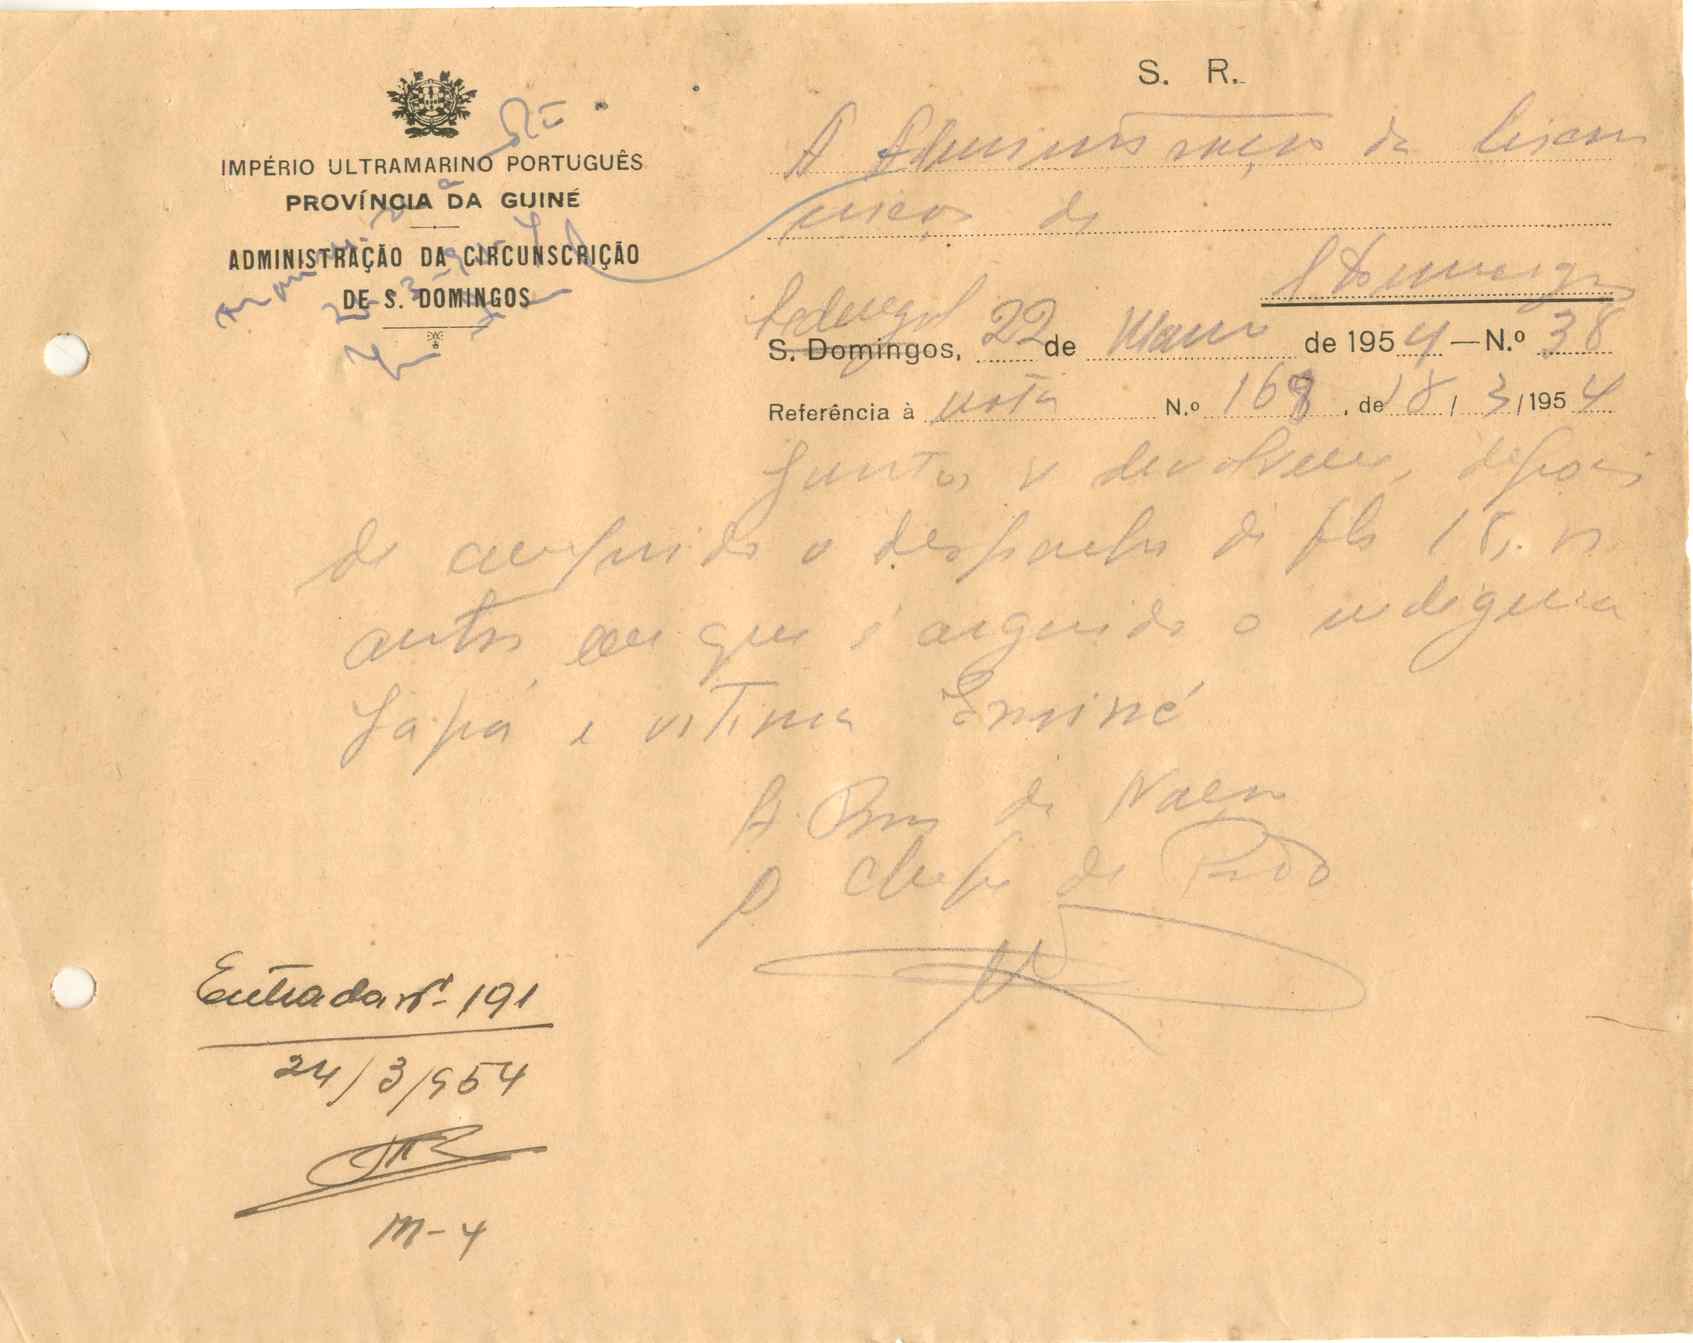 S. R.
IMPÉRIO ULTRAMARINO PORTUGUÊS
PROVÍNCIA DA GUINÉ
ADMINISTRAÇÃO DA CIRCUNSCRIÇÃO
DE S. DOMINGOS
A Administração da Circuns
crição de
S. Domingos
S. Domingos, 22 de Março de 1954 — N.º 38
Referência à nota N.º 168, de 18/3/1954
Juntos se devolvem, depois
de cumprido o despacho de fls 18, os
autos em que é arguido o indigena
Japá e vitima
A Bem da Nação
O Chefe do Posto
Entrada nº 191
24/3/954
M-4